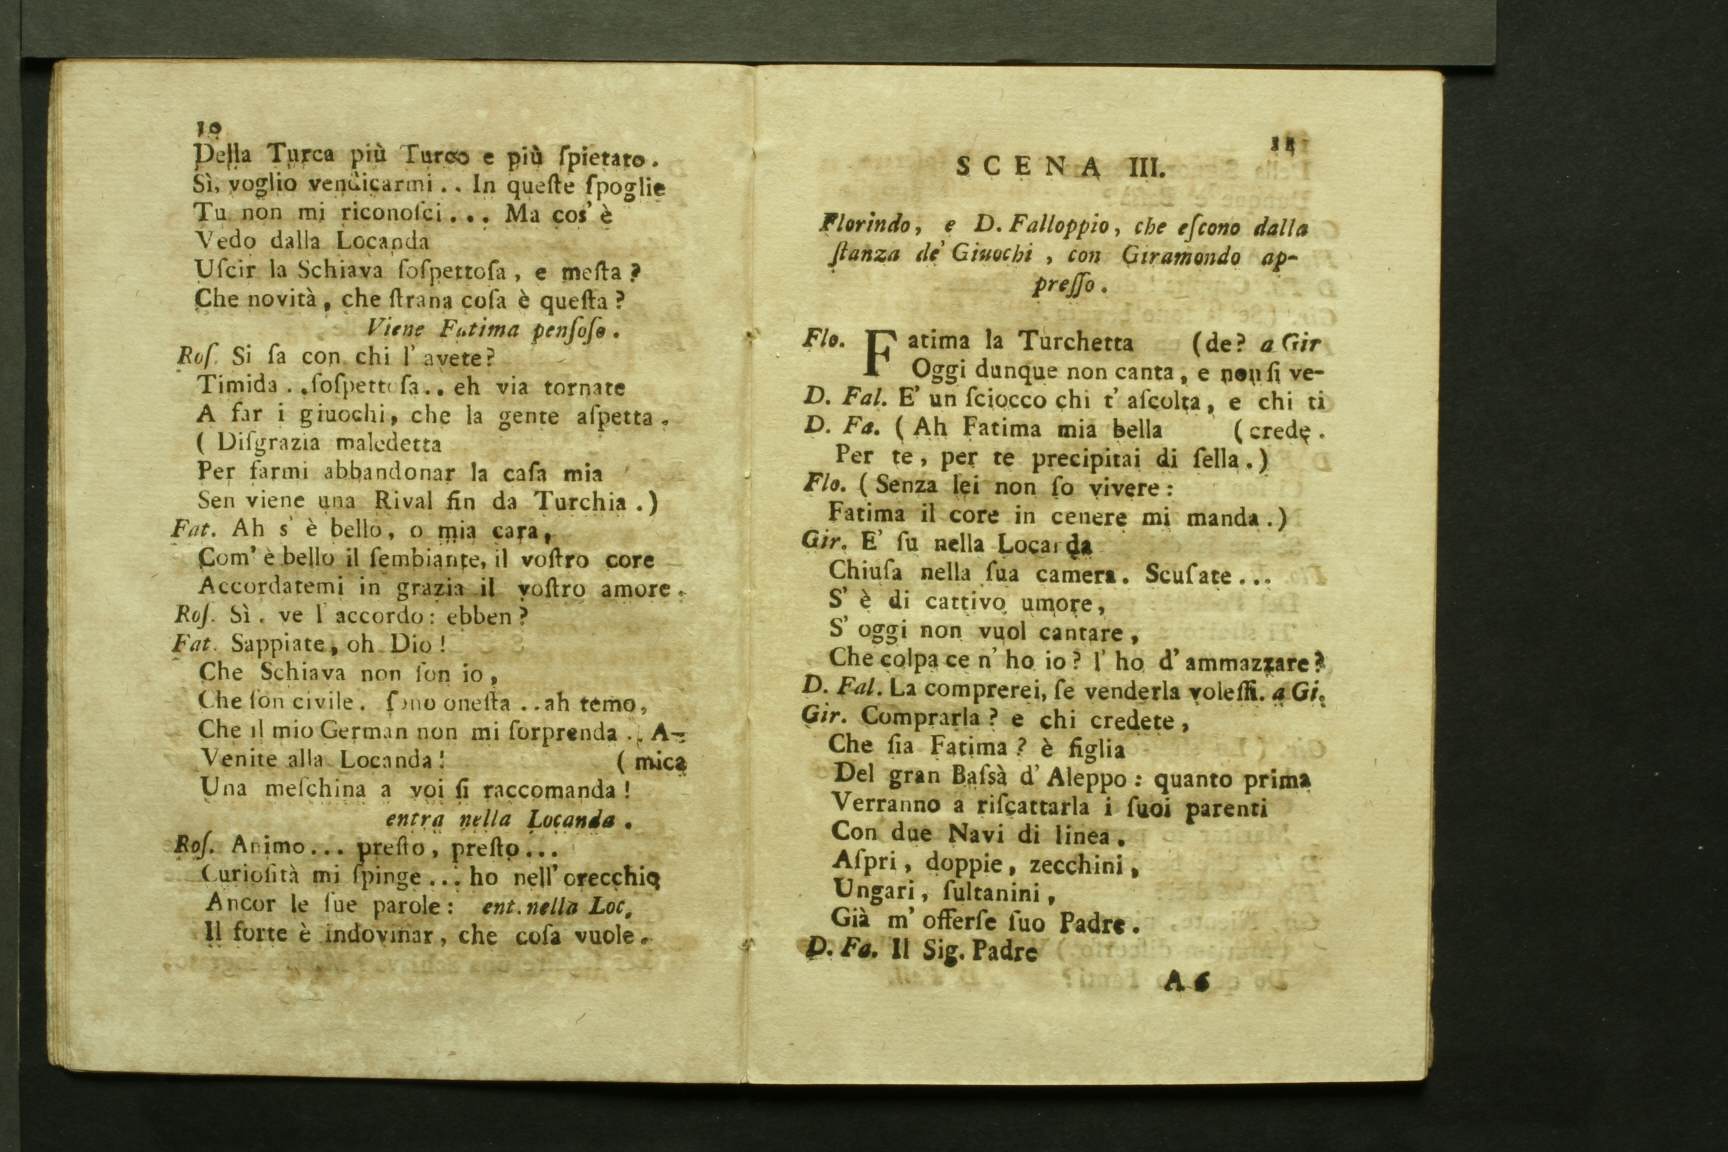 10
Della Turca più Turco e più ſpietato.
Sì, voglio vendicarmi.. In queſte ſpoglie
Tu non mi riconoſci... Ma cos' è
Vedo dalla Locanda
Uſcir la Schiava ſoſpettoſa, e meſta?
Che novità, che ſtrana coſa è queſta?
Viene Fatima penſoſo.
Roſ. Si ſa con chi l' avete?
Timida..ſoſpettoſa.. eh via tornate
A far i giuochi, che la gente aſpetta.
( Diſgrazia maledetta
Per farmi abbandonar la caſa mia
Sen viene una Rival fin da Turchia.)
Fat. Ah s' è bello, o mia cara,
Com' è bello il ſembiante, il voſtro core
Accordatemi in grazia il voſtro amore.
Roſ. Sì. ve l' accordo: ebben?
Fat. Sappiate, oh Dio!
Che Schiava non ſon io,
Che ſon civile. ſono oneſta..ah temo,
Che il mio German non mi ſorprenda.. A-
Venite alla Locanda! ( mica
Una meſchina a voi ſi raccomanda!
entra nella Locanda.
Roſ. Animo... preſto, preſto...
Curioſità mi ſpinge... ho nell' orecchio
Ancor le ſue parole: ent. nella Loc.
Il forte è indovinar, che coſa vuole.
11
SCENA III.
Florindo, e D. Falloppio, che eſcono dalla
ſtanza de' Giuochi, con Giramondo ap-
preſſo.
Flo. Fatima la Turchetta (de? a Gir
Oggi dunque non canta, e non ſi ve-
D. Fal. E' un ſciocco chi t' aſcolta, e chi ti
D. Fa. ( Ah Fatima mia bella (crede.
Per te, per te precipitai di ſella.)
Flo. ( Senza lei non ſo vivere:
Fatima il core in cenere mi manda.)
Gir. E' ſu nella Locarda
Chiuſa nella ſua camera. Scuſate...
S' è di cattivo umore,
S' oggi non vuol cantare,
Che colpa ce n' ho io? l' ho d' ammazzare?
D. Fal. La comprerei, ſe venderla voleſſi. a Gi.
Gir. Comprarla? e chi credete,
Che ſia Fatima? è figlia
Del gran Baſsà d' Aleppo: quanto prima
Verranno a riſcattarla i ſuoi parenti
Con due Navi di linea.
Aſpri, doppie, zecchini,
Ungari, ſultanini,
Già m' offerſe ſuo Padre.
D. Fa. Il Sig. Padre
A 6